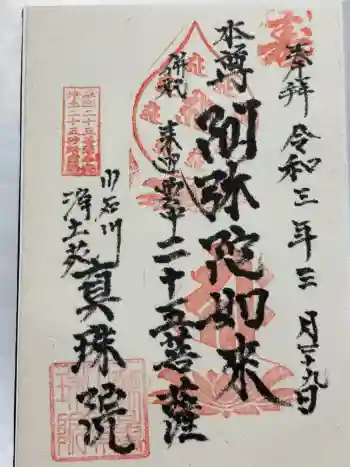 奉拝 令和三年三月二十九日
本尊 阿弥陀如来
併戴 来迎雲中二十五菩薩
小石川
浄土苑 真珠院